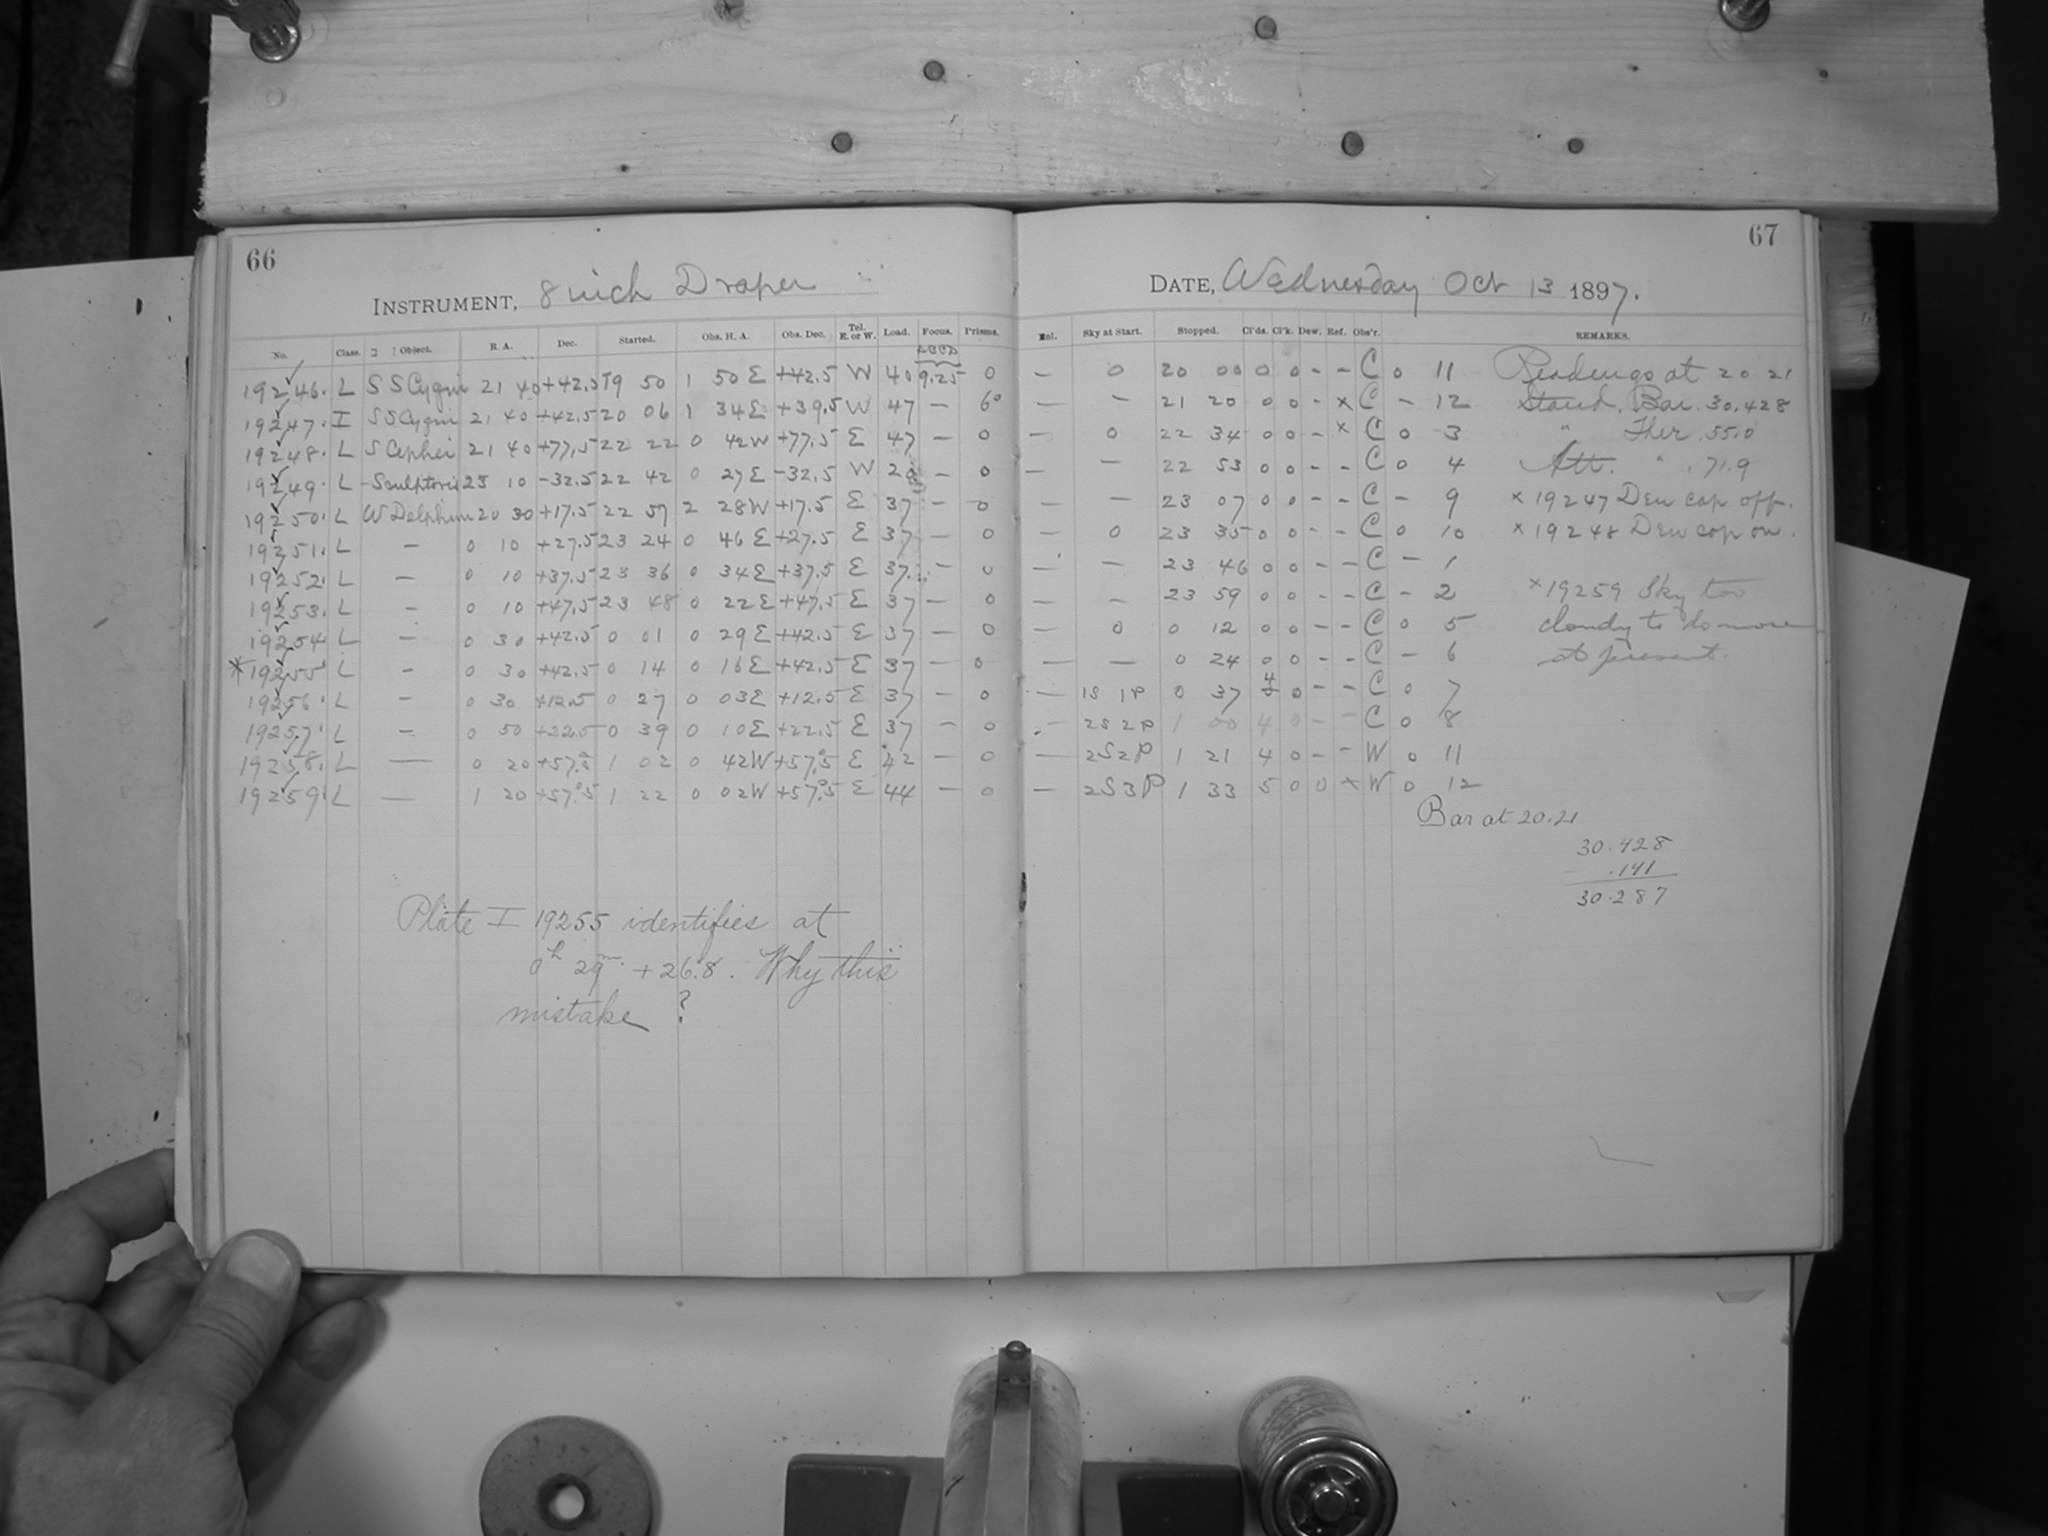 66
67
INSTRUMENT, 8 inch Draper
DATE, Wednesday Oct 13 1897.
No. Class. Object. R. A. Dec. Started. Obs. H. A. Obs. Dec. Tel. E. or W. Load. Focus. Prisms. Sky at Start. Stopped. Cl'ds. Cl'k. Dew. Ref. Obs'r. REMARKS.
19246. L SS Cygni 21 40 +42.5 19 50 1 50 E +42.5 W 40 9.25 0 — 0 20 00 0 0 - - C 0 11 Readings at 20 21
19247. I SS Cygni 21 40 +42.5 20 06 1 34 E +39.5 W 47 — 6° — - 21 20 0 0 - x C - 12 Stand. Bar. 30.428
19248. L S Cephei 21 40 +77.5 22 22 0 42 W +77.5 E 47 — 0 — 0 22 34 0 0 - x C 0 3 " Ther. 55.0
19249. L - Sculptoris 23 10 -32.5 22 42 0 27 E -32.5 W — 0 — — 22 53 0 0 - - C 0 4 Att. " 71.9
19250. L W Delphini 20 30 +17.5 22 57 2 28 W +17.5 E 37 — 0 — — 23 07 0 0 - - C - 9 x 19247 Dew cap off.
19251. L — 0 10 +27.5 23 24 0 46 E +27.5 E 37 — 0 — 0 23 35 0 0 - - C 0 10 x 19248 Dew cap on.
19252. L — 0 10 +37.5 23 36 0 34 E +37.5 E 37 — 0 — — 23 46 0 0 - - C - 1
19253. L — 0 10 +47.5 23 48 0 22 E +47.5 E 37 — 0 — - 23 59 0 0 - - C - 2 x 19259 Sky too
19254 L — 0 30 +42.5 0 01 0 29 E +42.5 E 37 — 0 — 0 0 12 0 0 - - C 0 5 cloudy to do more
* 19255 L - 0 30 +42.5 0 14 0 16 E +42.5 E 37 — 0 — — 0 24 0 0 - - C - 6 at present.
19256. L — 0 30 +12.5 0 27 0 03 E +12.5 E 37 — 0 — 1S 1P 0 37 4 0 - - C 0 7
19257. L — 0 50 +22.5 0 39 0 10 E +22.5 E 37 — 0 — 2S 2P 1 00 4 0 - - C 0 8
19258. L — 0 20 +57.5 1 02 0 42 W +57.5 E 42 — 0 — 2S2P 1 21 4 0 - - W 0 11
19259. L — 1 20 +57.5 1 22 0 02 W +57.5 E 44 — 0 — 2S3P 1 33 5 0 0 x W 0 12
Bar at 20.21
30.428
- .141
30.287
Plate I 19255 identifies at
0h 29m. +26.8. Why this
mistake ?